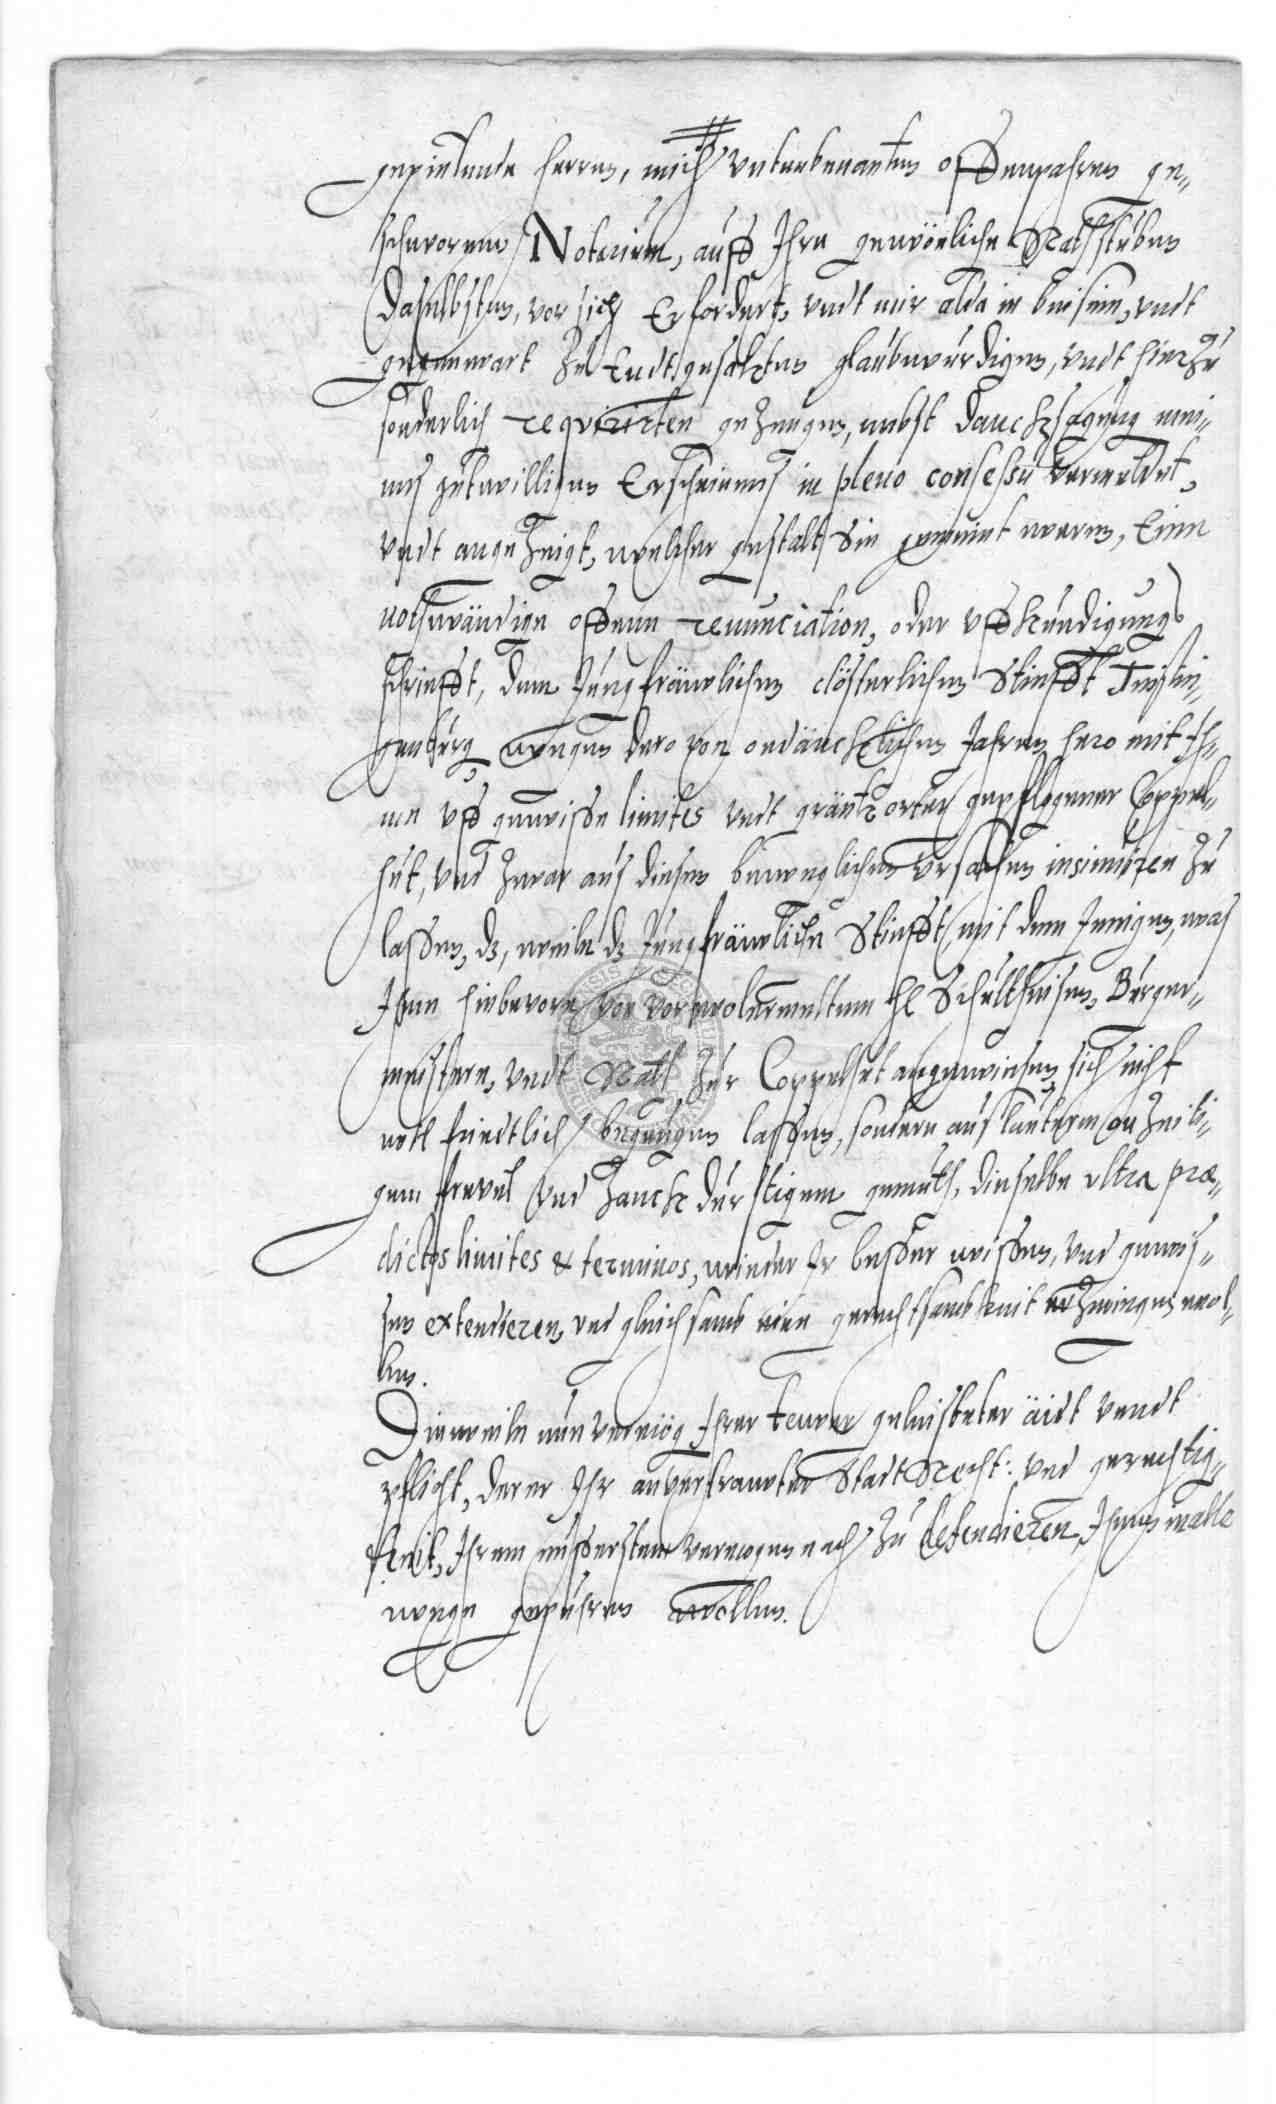 gepietende herren, mich unterbenanten offenpahren ge-
schworenen Notarium, auff Ihre gewönliche Rathstuben
daselbsten, vor sich Erfordert, undt mir alda in beisein, undt
gegenwart zu Endt gesetzten glaubwürdigen, undt hierzu
sonderlich requirirten gezeugen, nebst dancksagung mei-
nes gutwilligen Erscheinens in pleno consessu vermeldet,
undt angezeigt, welcher gestalt Sie gemeint weren, Einn
nothwändige offenn renunciation, oder uffkündigungs
schriefft, dem Jungfräwlichen clösterlichen Stiefft
wegen dero von ondäncklichen Jahren hero mit Ih-
nen uff gewisse limites undt gräntzorter gepflogener Coppel-
hut, und zwar aus diesen beweglichen Ursachen insinuiren zu
lassen, dz, weiln dz Jungfräwliche Stiefft mit dem Jenigen, was
Ihnen hiebevorn von vorwolermeltem H Schultheisen, Bürger-
meistern, undt Rath zur Coppelhut angewiesen, sich nicht
will friedtlich begnügen lassen, sondern aus lauterm onzeiti-
gem frevel und zanckdurstigem gemüth, dieselbe ultra præ-
dictos limites & terminos, wieder Ir besser wissen, und gewis-
sen extendieren, und gleichsamb eine gerechtsambkeit erzwingen wol-
len.
Dieweiln nun vermög Ihrer teurer geleisteter äidt unndt
pflicht, derer Ihr anvertrawter Stadt Recht: und gerechtig-
keit, Ihrem eussersten vermogen nach zu defendieren, Ihnen inalle
wege gepühren wollen.